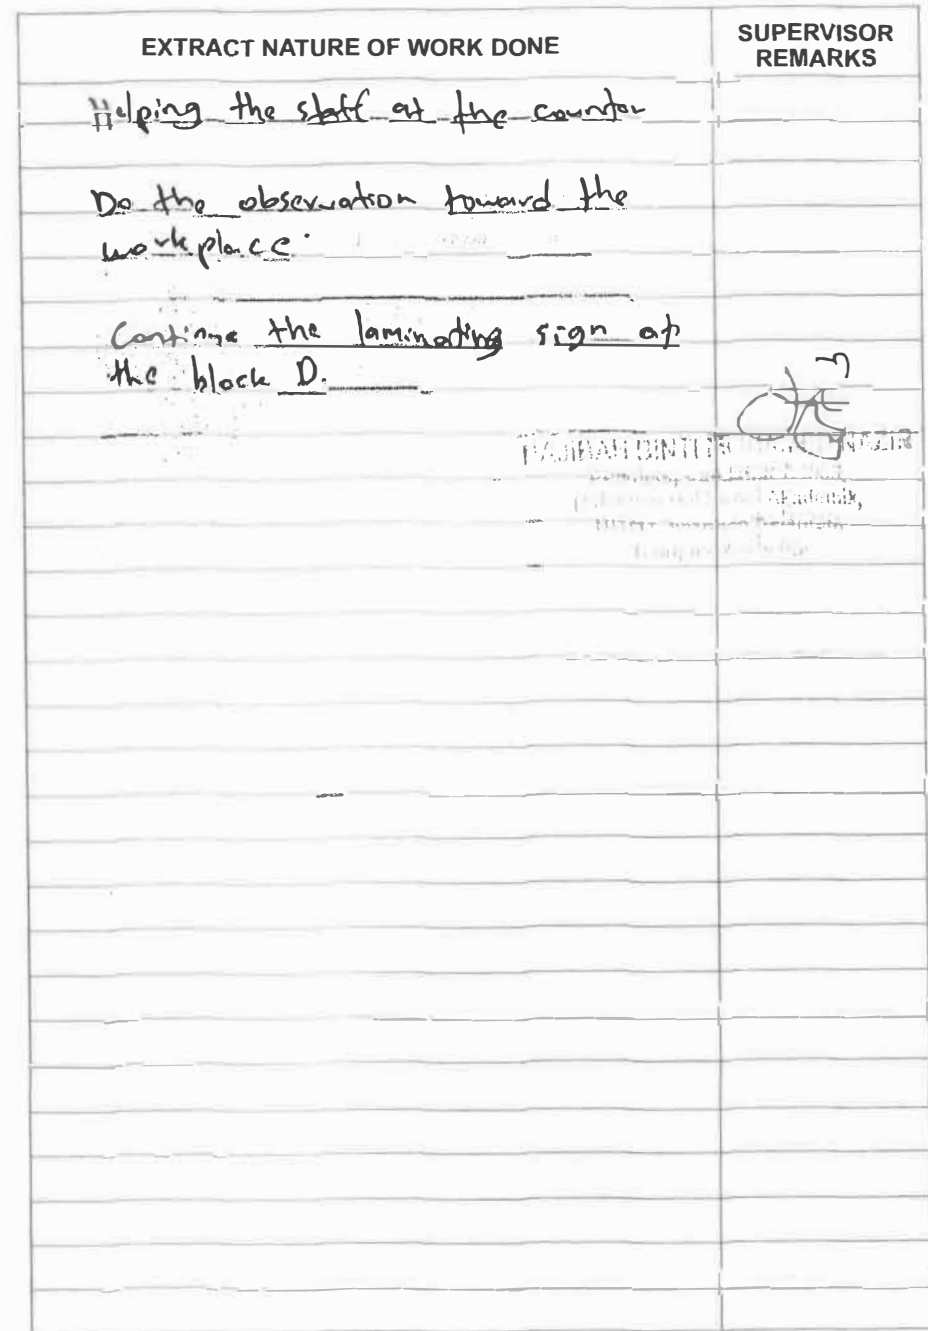 EXTRACT NATURE OF WORK DONE
SUPERVISOR
REMARKS
Helping the staff at the counter
Do the observation toward the
workplace.
Continue the laminating sign at
the block D.
Akademik,